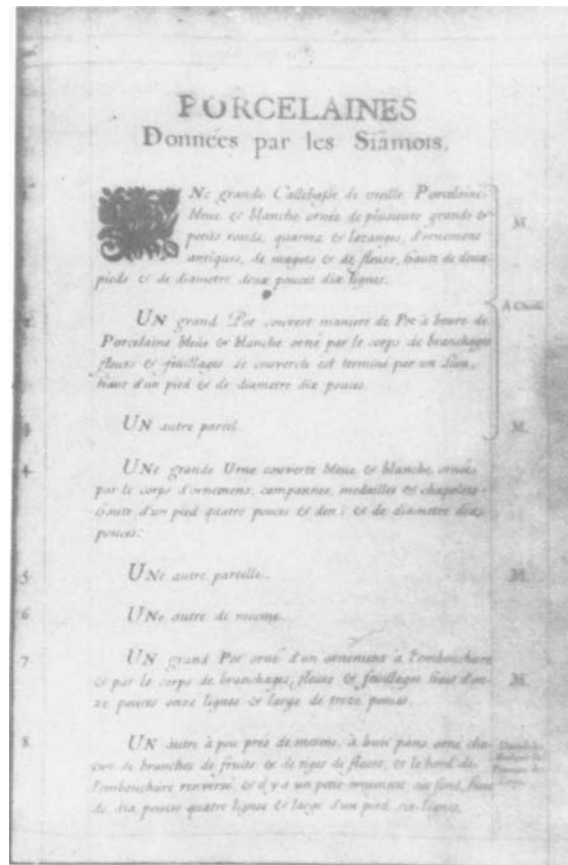 PORCELAINES
Données par les Siamois.
1 UNe grande Callebasse de vieille Porcelaine M.
bleüe & blanche ornée de plusieurs grands &
petits ronds, quarrez & lozanges, d'ornemens
antiques, de magots & de fleurs, haute de deux
pieds & de diametre douze pouces dix lignes.
A Chidi
2 UN grand Pot couvert maniere de Pot à beure de
Porcelaine bleüe & blanche orné par le corps de branchages
fleurs & feuillages le couvercle est terminé par un Lion,
haut d'un pied & de diametre dix pouces.
3 UN autre pareil. M.
4 UNe grande Urne couverte bleüe & blanche ornée
par le corps d'ornemens, campannes, medailles & chapelets
haute d'un pied quatre pouces & demi & de diametre dix
pouces.
5 UNe autre pareille. M.
6 UNe autre de mesme.
7 UN grand Pot orné d'un ornement à l'embouchure
& par le corps de branchages, fleurs & feuillages haut d'on-
ze pouces onze lignes & large de treze pouces. M.
8 UN autre à peu prés de mesme, à huit pans orné cha-
cun de branches de fruits & de tiges de fleurs, & le bord de
l'embouchure renversé & il y a un petit ornement au fond, haut
de dix pouces quatre lignes & large d'un pied six lignes.